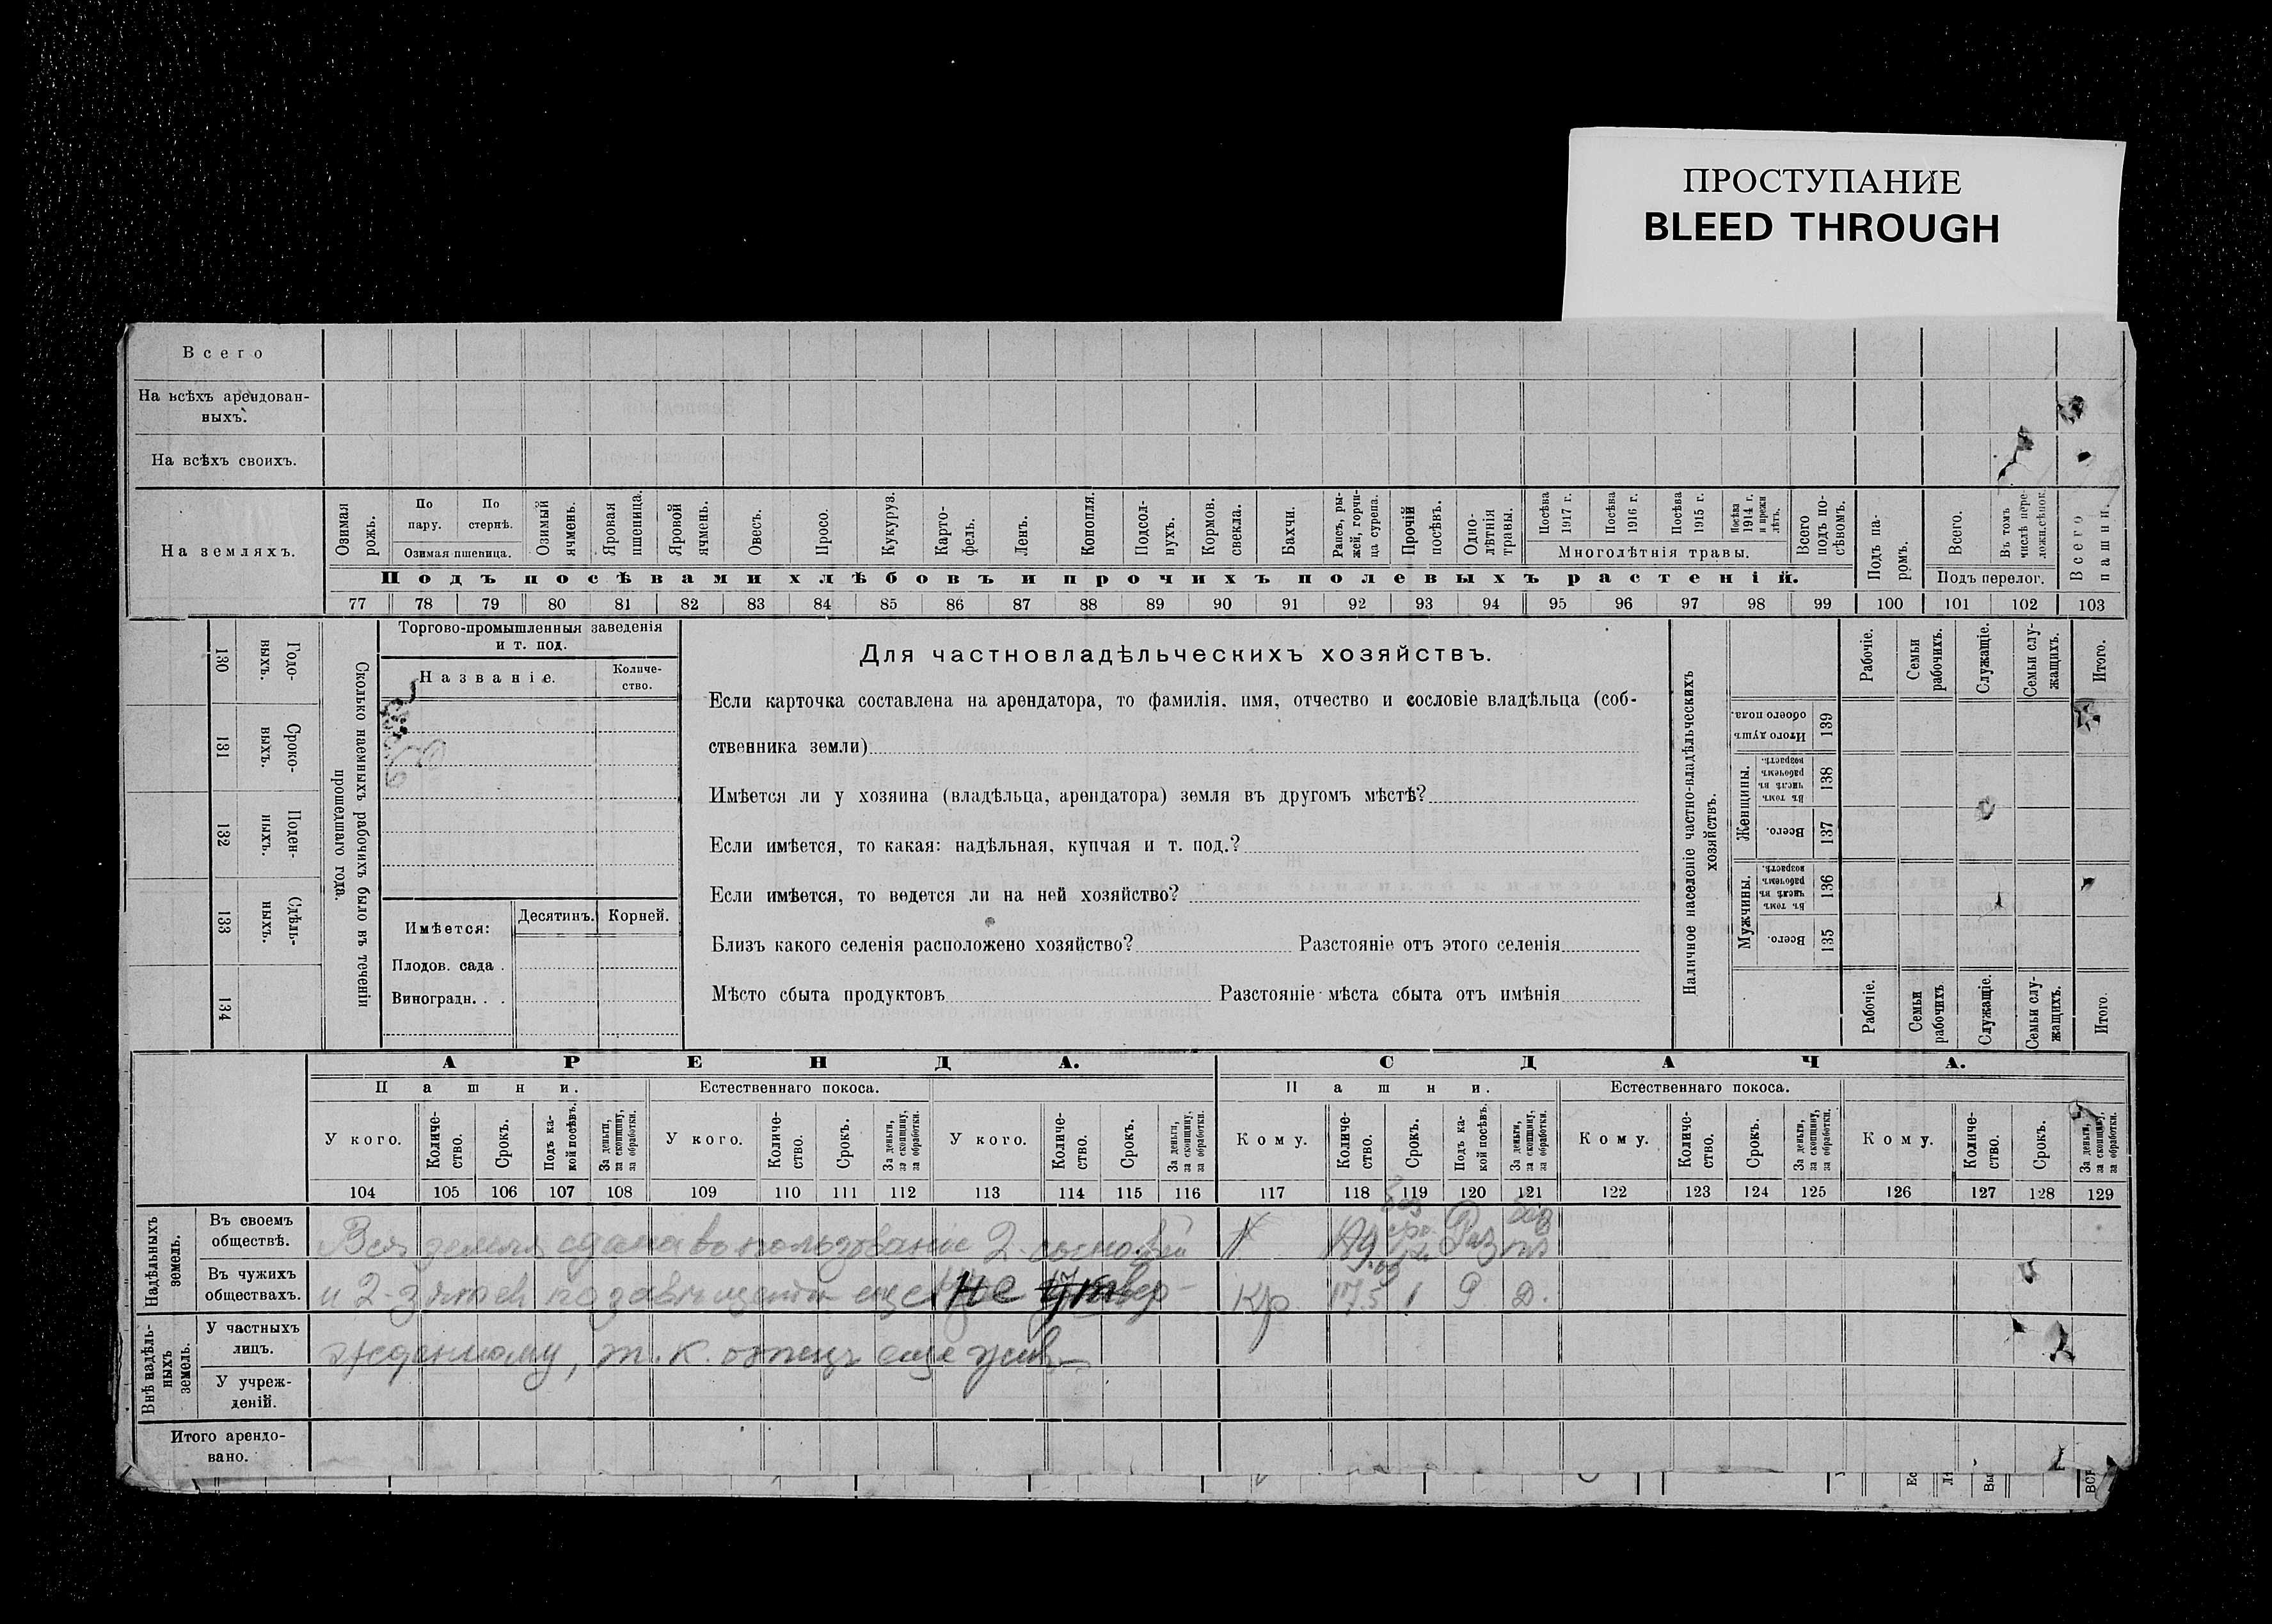 ПРОСТУПАНИЕ
BLEED THROUGH
Всего
На всѣхъ арендован-
ныхъ.
На всѣхъ своихъ.
На земляхъ.
Озимая рожь.
По пару.
По стернѣ.
Озимая пшеница.
Озимый ячмень.
Яровая пшеница.
Яровой ячмень.
Овесъ.
Просо.
Кукуруз.
Карто-
фель.
Ленъ.
Конопля.
Подсол-
нухъ.
Кормов.
свекла.
Бахчи.
Рапсъ, ры-
жей, горчи-
ца сурепа.
Прочій
посѣвъ.
Одно-
лѣтнія
травы.
Посѣва
1917 г.
Посѣва
1916 г.
Посѣва
1915 г.
Посѣва
1914 г.
и прежн
лѣтъ.
Многолѣтнія травы.
Всего
подъ по-
сѣвомъ.
Подъ па-
ромъ.
Всего.
Въ томъ
числѣ пере-
ложн.сѣнок.
Подъ перелог.
Всего
пашни.
Подъ посѣвами хлѣбовъ и прочихъ полевыхъ растеній.
77 78 79 80 81 82 83 84 85 86 87 88 89 90 91 92 93 94 95 96 97 98 99 100 101 102 103
130 Годо-
выхъ.
131 Сроко-
выхъ.
132 Поден-
ныхъ.
133 Сдѣль-
ныхъ.
134
Сколько наемныхъ рабочихъ было въ теченіи
прошедшаго года.
Торгово-промышленныя заведенія
и т. под.
Названіе.
Количе-
ство.
Имѣется:
Десятинъ.
Корней.
Плодов. сада .
Виноградн. . .
Для частновладѣльческихъ хозяйствъ.
Если карточка составлена на арендатора, то фамилія, имя, отчество и сословіе владѣльца (соб-
ственника земли)
Имѣется ли у хозяина (владѣльца, арендатора) земля въ другомъ мѣстѣ?
Если имѣется, то какая: надѣльная, купчая и т. под.?
Если имѣется, то ведется ли на ней хозяйство?
Близъ какого селенія расположено хозяйство? Разстояніе отъ этого селенія
Мѣсто сбыта продуктовъ Разстояніе мѣста сбыта отъ имѣнія
Наличное населеніе частно-владѣльческихъ
хозяйствъ.
Рабочіе.
Семьи
рабочихъ.
Служащіе.
Семьи слу-
жащихъ.
Итого.
Итого душъ
обоего пола.
139
Женщины.
Въ томъ
числѣ въ
рабочемъ
возрастѣ.
138
Всего.
137
Мужчины.
Въ томъ
числѣ въ
рабочемъ
возрастѣ.
136
Всего.
135
Рабочіе.
Семьи
рабочихъ
Служащіе.
Семьи слу-
жащихъ.
Итого.
АРЕНДА.
СДАЧА.
Пашни.
Естественнаго покоса.
Пашни.
Естественнаго покоса.
У кого.
Количе-
ство.
Срокъ.
Подъ ка-
кой посѣвъ.
За деньги,
за скопщину,
за обработки.
У кого.
Количе-
ство.
Срокъ.
За деньги,
за скопщину,
за обработки.
У кого.
Количе-
ство.
Срокъ.
За деньги,
за скопщину,
за обработки.
Кому.
Количе-
ство.
Срокъ.
Подъ ка-
кой посѣвъ.
За деньги,
за скопщину,
за обработки.
Кому.
Количе-
ство.
Срокъ.
За деньги,
за скопщину,
за обработки.
Кому.
Количе-
ство.
Срокъ.
За деньги,
за скопщину,
за обработки.
104 105 106 107 108 109 110 111 112 113 114 115 116 117 118 119 120 121 122 123 124 125 126 127 128 129
Надѣльныхъ
земель.
Въ своемъ
обществѣ.
Вся земля сдана во пользованіе 2 сыновей
Въ чужихъ
обществахъ.
и 2 зятей по завѣщанію еще не утвер-
Кр. 17.5 1 Р Д.
Внѣ надѣль-
ныхъ
земель.
У частныхъ
лицъ.
жденному, т. к. отецъ еще живъ
У учреж-
деній.
Итого арендо-
вано.